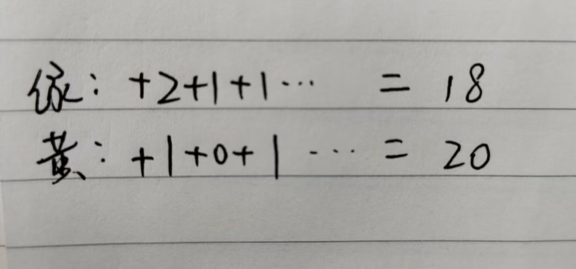 绿: +2+1+1… = 18
黄: +1+0+1 … = 20